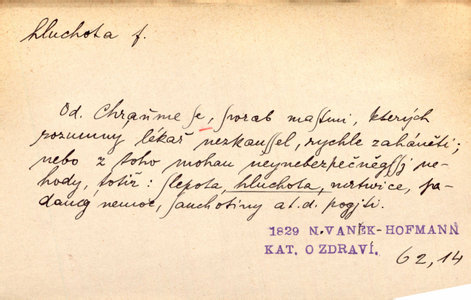 hluchota f.
Od. Chraňme se, svrab mastmi, kterých
rozumny lékař nezkaussel, rychle zaháněti;
nebo z toho mohau neynebezpečněgssj ne-
hody, totiž: slepota, hluchota, mrtwice, pa-
daucy nemoc, sauchotiny a t. d. pogjti.
1829 N. VANĚK-HOFMANN
KAT. O ZDRAVÍ.
62, 14